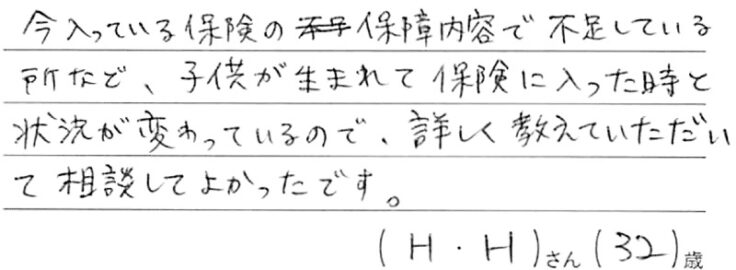 今入っている保険の保障内容で不足している
所など、子供が生まれて保険に入った時と
状況が変わっているので、詳しく教えていただい
て相談してよかったです。
(H・H)さん(32)歳